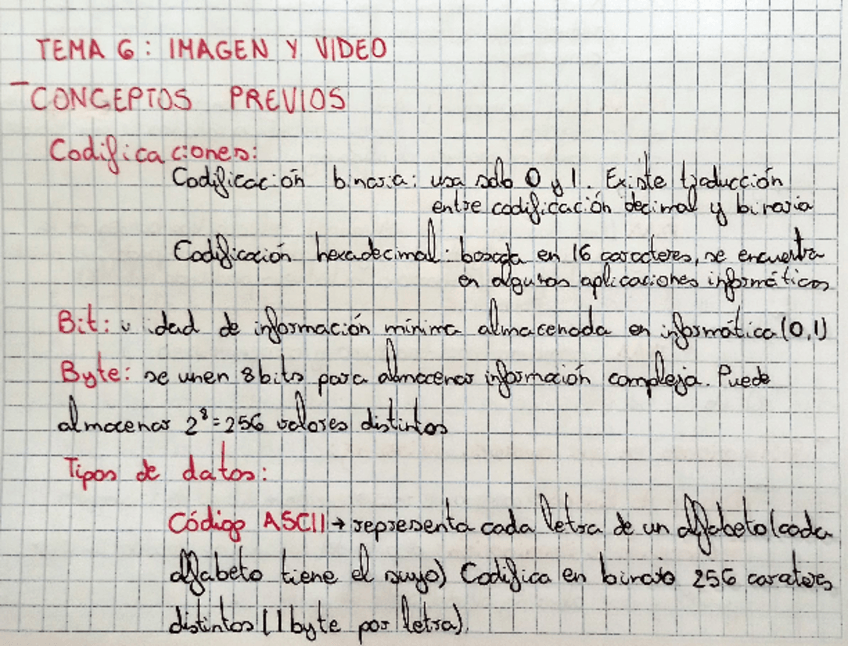 TEMA 6: IMAGEN Y VIDEO
- CONCEPTOS PREVIOS
Codificaciones:
Codificación binaria: usa solo 0 y 1. Existe traducción
entre codificación decimal y binaria
Codificación hexadecimal: basada en 16 caracteres, se encuentra
en algunas aplicaciones informáticas
Bit: u idad de información mínima almacenada en informática (0,1)
Byte: se unen 8 bits para almacenar información compleja. Puede
almacenar 2⁸=256 valores distintos
Tipos de datos:
Código ASCII → representa cada letra de un alfabeto (cada
alfabeto tiene el suyo) Codifica en binario 256 carateres
distintos (1 byte por letra).